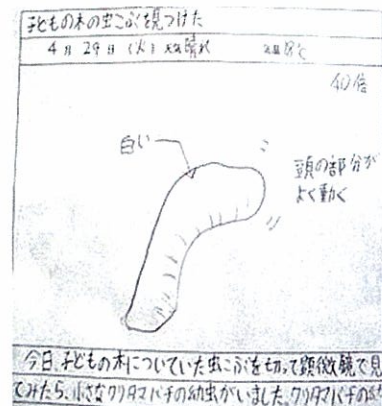 子どもの木の虫こぶを見つけた
4月29日(火) 天気 晴れ 気温 8℃
40倍
白い
頭の部分が
よく動く
今日、子どもの木についていた虫こぶを切って顕微鏡で見
てみたら、小さなクリタマバチの幼虫がいました。クリタマバチの